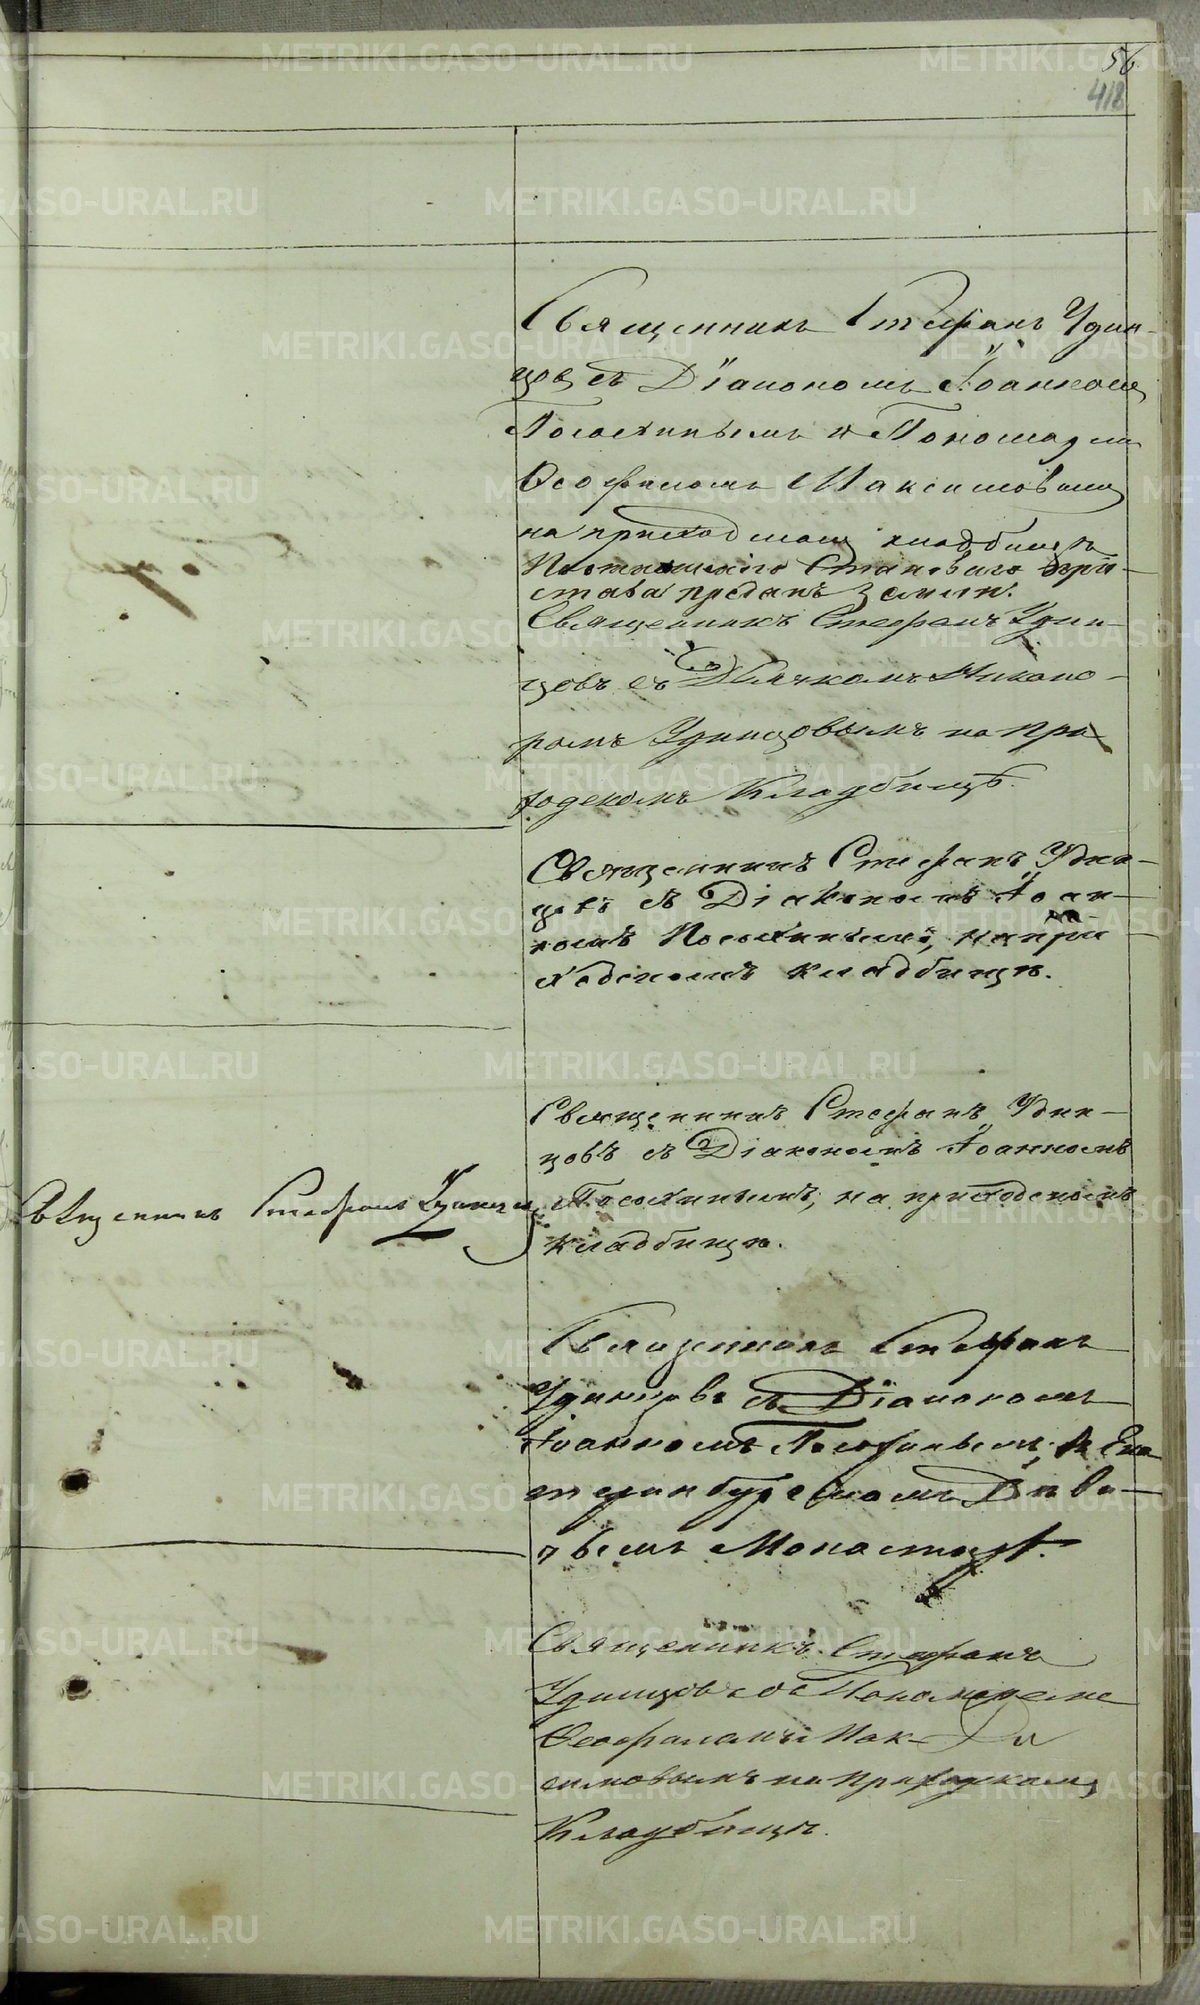 56
418
Священникъ Стефанъ Удин-
цовъ съ Діакономъ Іоанномъ
Посохинымъ и Пономаремъ
Ѳеофиломъ Максимовымъ
на приходскомъ кладбищѣ
Становаго При-
става преданъ землѣ.
Священникъ Стефанъ Удин-
цовъ съ Дьячкомъ Никано-
ромъ Удинцовымъ на При-
ходскомъ Кладбищѣ.
Священникъ Стефанъ Удин-
цовъ съ Діакономъ Іоан-
номъ Посохинымъ, на при-
ходскомъ кладбищѣ.
Священникъ Стефанъ Удин-
цовъ съ Діакономъ Іоанномъ
Посохинымъ, на приходскомъ
кладбищѣ.
Священникъ Стефанъ Удинцовъ
Священникъ Стефанъ
Удинцовъ съ Діакономъ
Іоанномъ Посохинымъ, въ Ека-
теринбургскомъ Дѣви-
чьемъ Монастырѣ.
Священникъ Стефанъ
Удинцовъ съ Пономаремъ
Ѳеофиломъ Мак-
симовымъ на Приходскомъ
Кладбищѣ.
METRIKI.GASO-URAL.RU